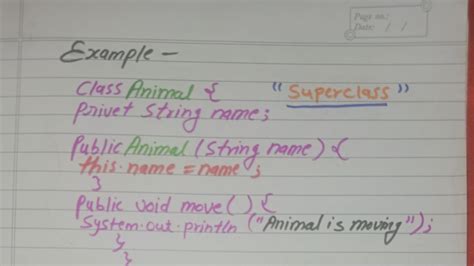 Page no.:
Date: / /
Example -
Class Animal { "Superclass"
privet String name;
public Animal (String name) {
this.name = name;
}
public void move() {
System.out.println ("Animal is moving");
}
}